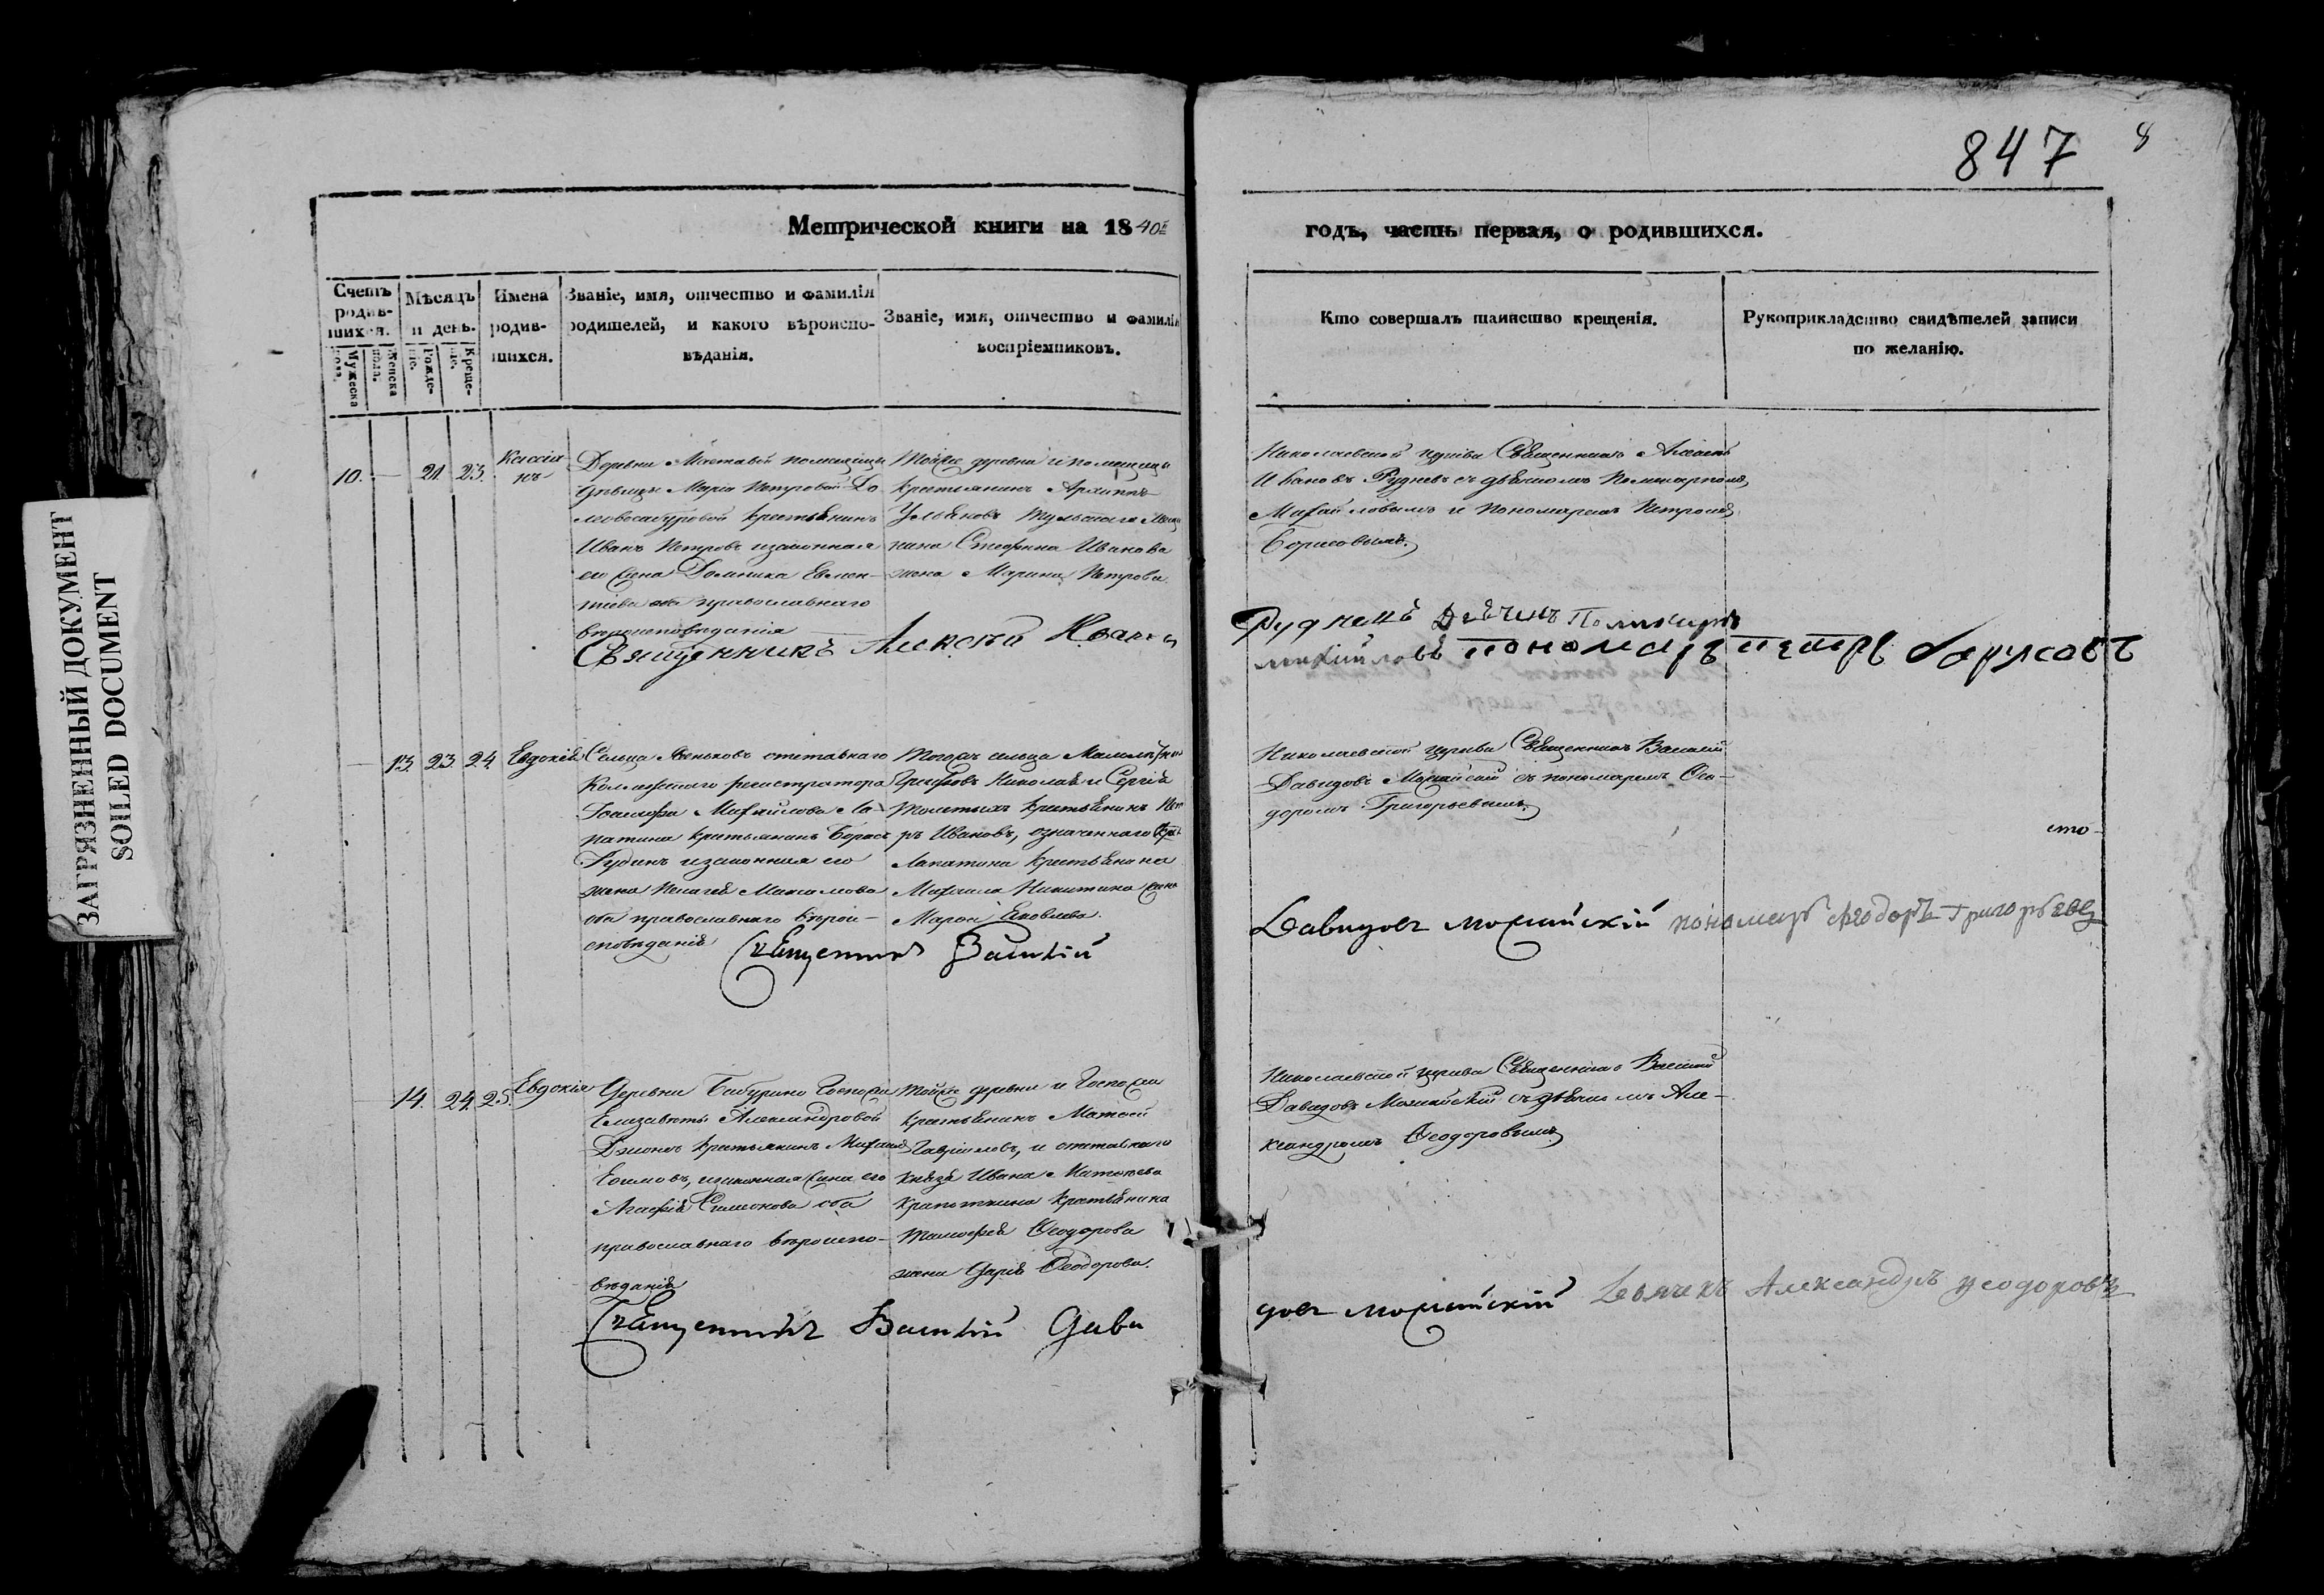 847
8
ЗАГРЯЗНЕННЫЙ ДОКУМЕНТ
SOILED DOCUMENT
Метрической книги на 1840й
годъ, часть первая, о родившихся.
Счетъ родившихся.
Мужеска пола.
Женска пола.
Мѣсяцъ и день.
Рожденіе.
Крещеніе.
Имена родившихся.
Званіе, имя, отчество и фамилія
родителей, и какого вѣроиспо-
вѣданія.
Званіе, имя, отчество и фамилія
воспріемниковъ.
Кто совершалъ таинство крещенія.
Рукоприкладство свидѣтелей записи
по желанію.
10. — 21. 23.
Кассіа-
нъ
Деревни помещицы
Девицы Маріи Петровой
крестьянинъ
Иванъ Петровъ и законная
его жена Домника Евлам-
піева оба православнаго
вѣроисповѣданія
Тойже деревни и помещицы
крестьянинъ Архиппъ
Ульяновъ Тульскаго
Стефана Иванова
жена Марина Петрова.
Николаевской церкви Священникъ Алексѣй
Ивановъ Рудневъ съ дьячкомъ Поликарпомъ
Михайловымъ и пономаремъ Петромъ
Борисовымъ.
Священникъ Алексѣй Ивановъ
Рудневъ Дьячекъ Поликарпъ
михайловъ пономарь петръ борисовъ
— 13. 23. 24. Евдокія
Сельца отставнаго
Коллежскаго регистратора
Михайлова Ло-
патина крестьянинъ Борисъ
и законная его
жена Пелагея Максимова
оба православнаго вѣрои-
сповѣданія
Тогожъ сельца
Николая и Сергія
Толстыхъ крестьянинъ Пет
ръ Ивановъ, означеннаго
Лапатина крестьянина
Михаила Никитина жена
Марья Яковлева.
Николаевской церкви Священникъ Василій
Давидовъ Можайскій съ пономаремъ Ѳео-
доромъ Григорьевымъ
Священникъ Василій
Давидовъ Можайскій пономарь Ѳеодоръ Григорьевъ
— 14. 24. 25. Евдокія
Деревни Бабурино Госпожи
Елизаветы Александровой
крестьянинъ Михаилъ
и законная жена его
Агафія Симеонова оба
православнаго вѣроиспо-
вѣданія
Тойже деревни и Госпожи
крестьянинъ Матвей
Гавриловъ, и отставнаго
князя Ивана
Крапоткина крестьянина
Тимофея Ѳеодорова
жена Дарья Ѳеодорова.
Николаевской церкви Священникъ Василій
Давидовъ Можайскій съ дьячкомъ Але-
ксандромъ Ѳеодоровымъ
Священникъ Василій Дави
довъ Можайскій Дьячекъ Александръ Ѳеодоровъ